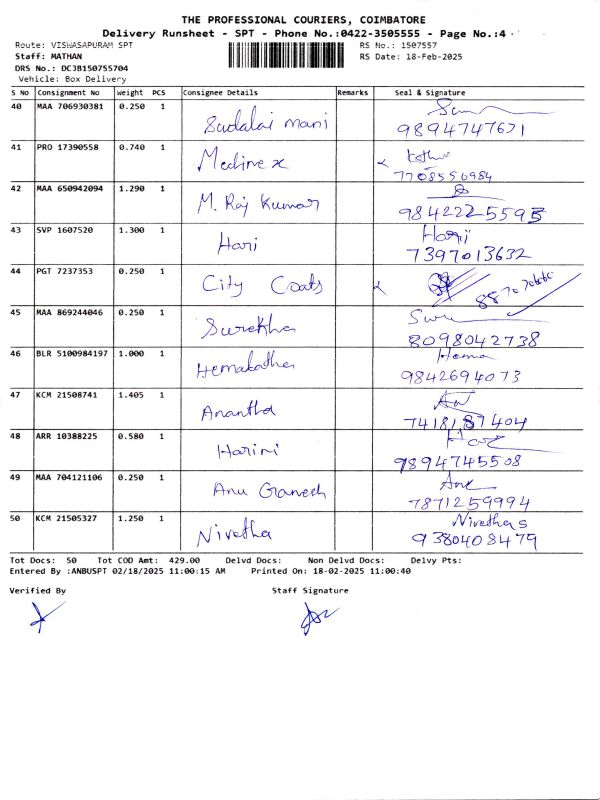 THE PROFESSIONAL COURIERS, COIMBATORE
Delivery Runsheet - SPT - Phone No.:0422-3505555 - Page No.:4
Route: VISWASAPURAM SPT RS No.: 1507557
Staff: MATHAN RS Date: 18-Feb-2025
DRS No.: DCJB150755704
Vehicle: Box Delivery
S No Consignment No Weight PCS Consignee Details Remarks Seal & Signature
40 MAA 706930381 0.250 1 Sudalai mani 9894747671
41 PRO 17390558 0.740 1 Medimex 7708556984
42 MAA 650942094 1.290 1 M. Raj Kumar 9842225595
43 SVP 1607520 1.300 1 Hari Harij 7397013632
44 PGT 7237353 0.250 1 City Coats
45 MAA 869244046 0.250 1 Surekha 8098042738
46 BLR 5100984197 1.000 1 Hemalatha Hema 9842694073
47 KCM 21508741 1.405 1 Anantha 7418187404
48 ARR 10388225 0.580 1 Harini 9894745508
49 MAA 704121106 0.250 1 Anu Ganesh 7871259994
50 KCM 21505327 1.250 1 Nivetha Nivetha s 9380408479
Tot Docs: 50 Tot COD Amt: 429.00 Delvd Docs: Non Delvd Docs: Delvy Pts:
Entered By :ANBUSPT 02/18/2025 11:00:15 AM Printed On: 18-02-2025 11:00:40
Verified By Staff Signature